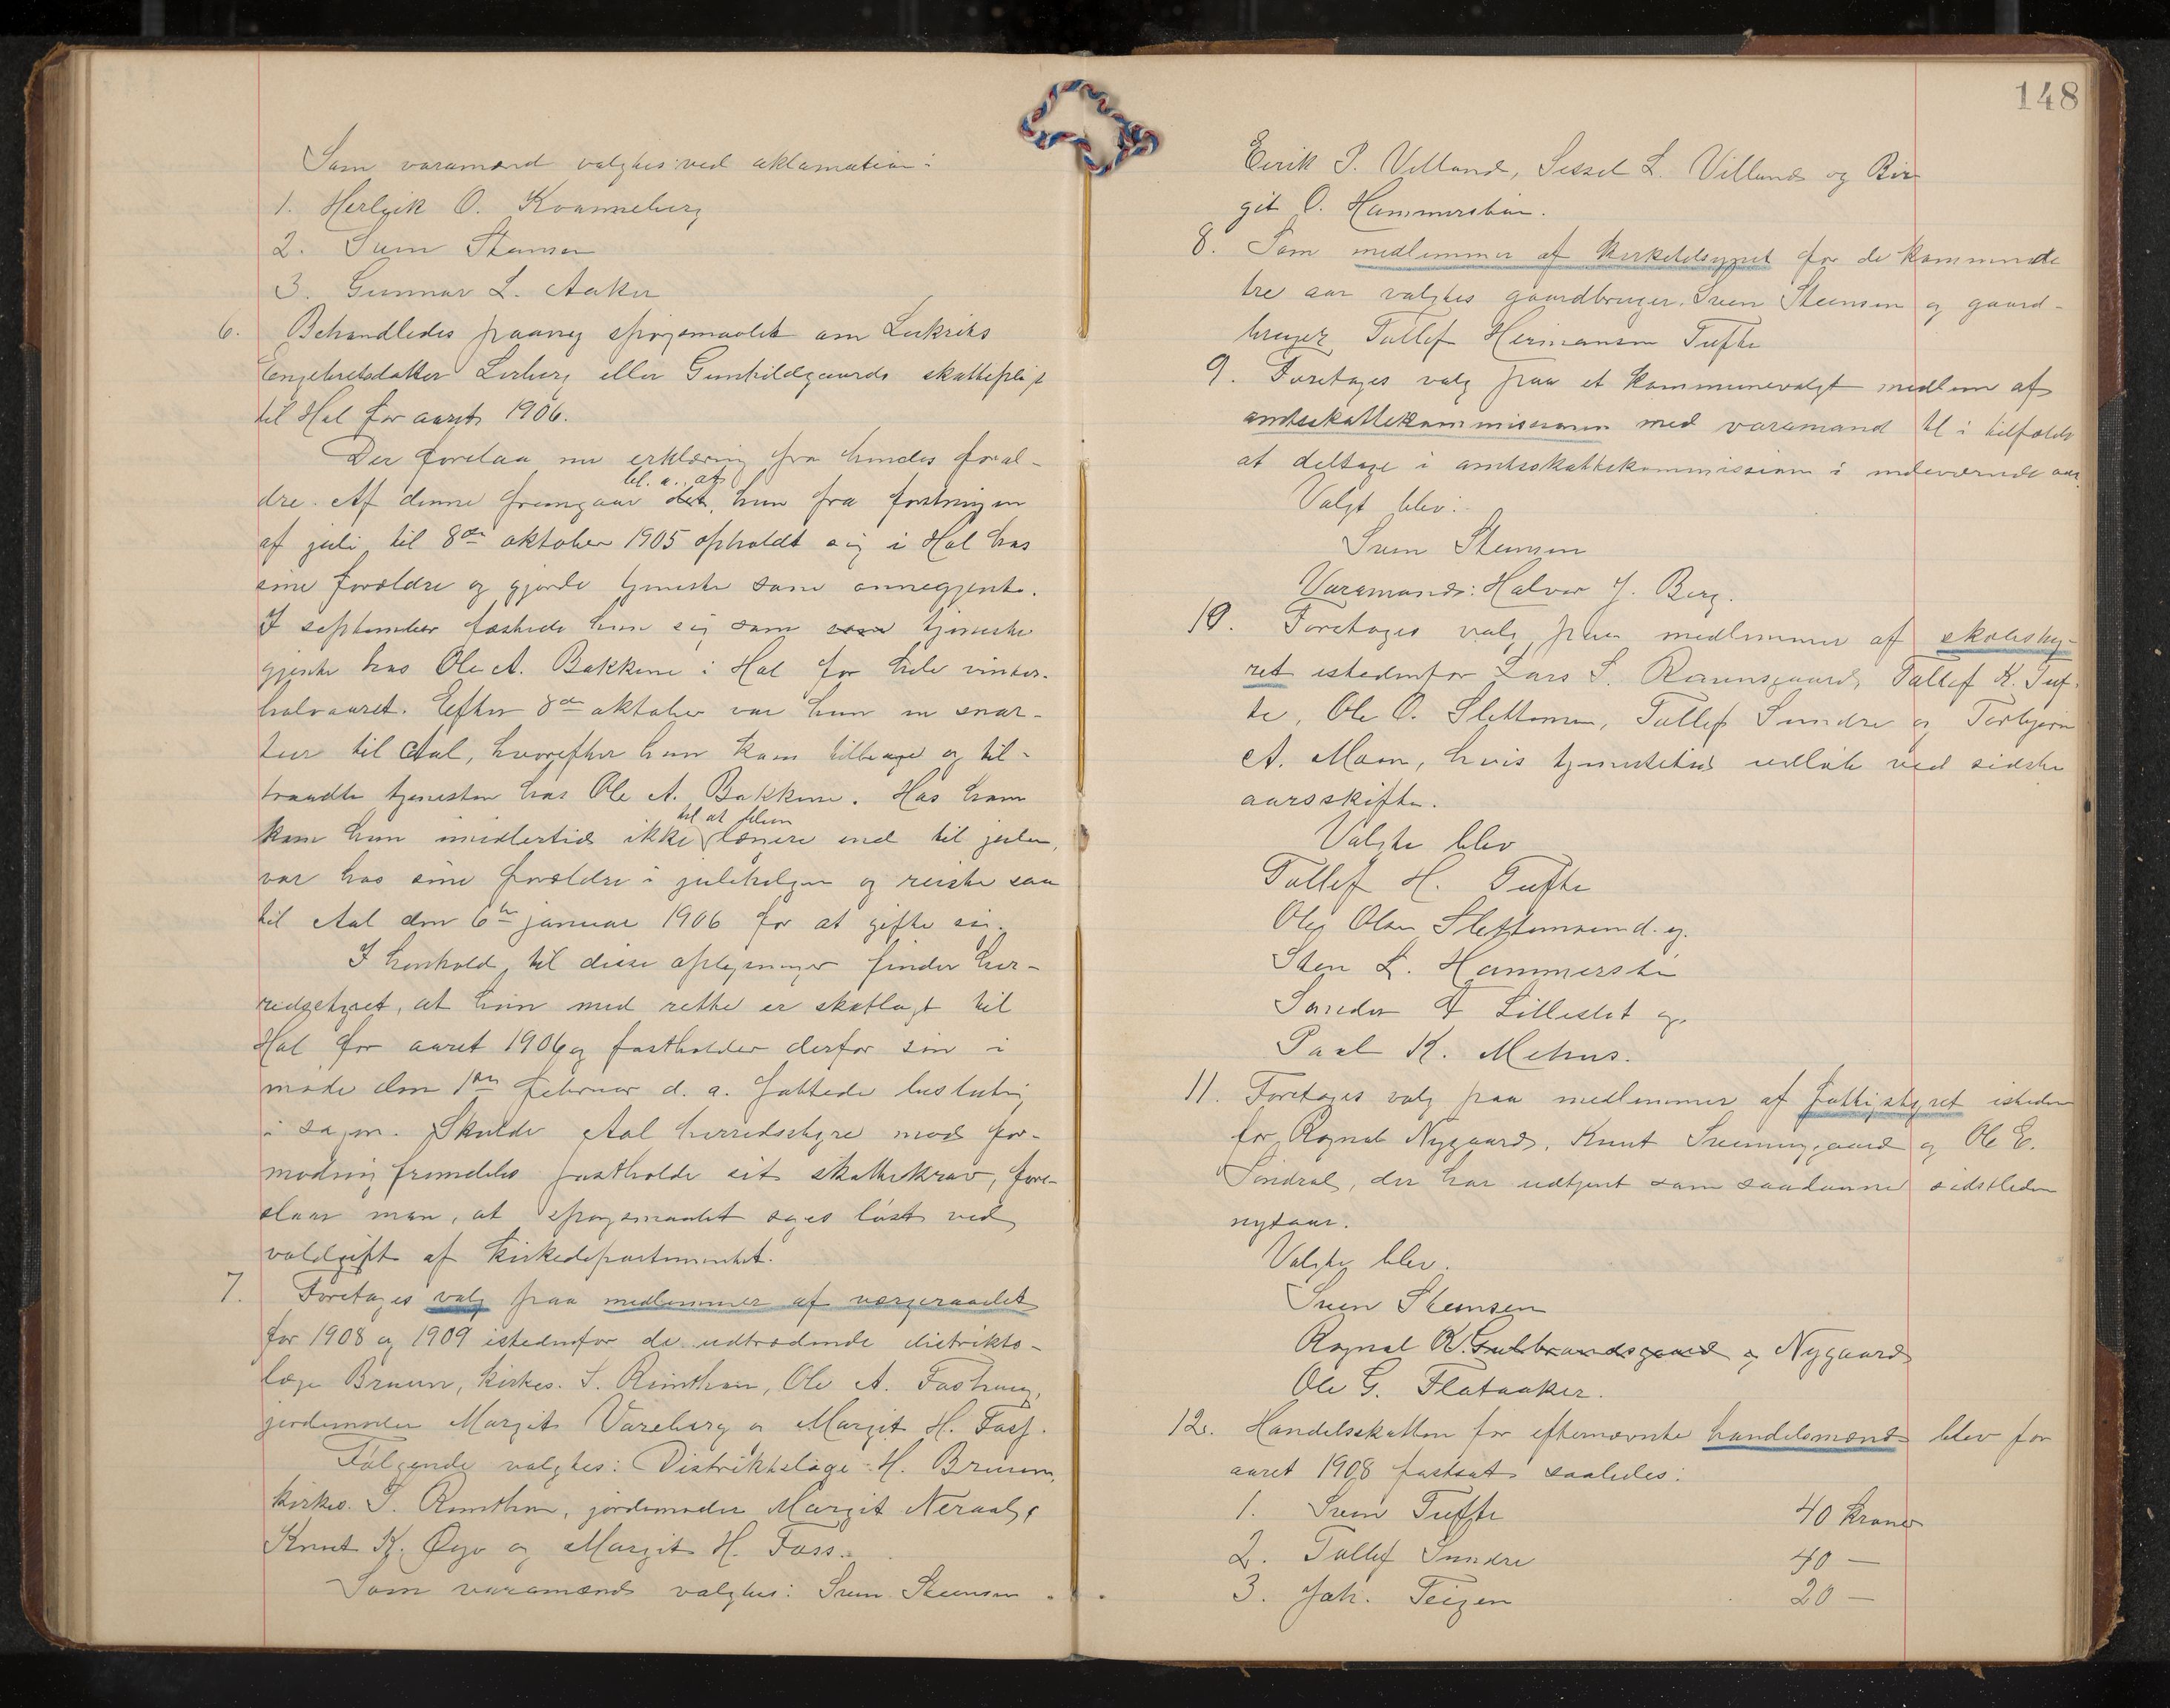 Som varamænd valgtes ved aklamation:
1. Herleik O. Kvanneberg
2. Sven Stensen
3. Gunnar L. Aaker
6. Behandledes paany spørgsmaalet om
Engebretsdatter Lerberg eller Gunhildgaards skattepligt
til Hol for aaret 1906.
Der forelaa nu erklæring fra hendes foræl-
dre. Af denne fremgaar det, bl. a., at hun fra
af juli til 8de oktober 1905 opholdt sig i Hol hos
sine forældre og gjorde tjeneste som onnegjente.
I september fæstede hun sig som som tjeneste
gjente hos Ole A. Bakkene i Hol for hele vinter-
halvaaret. Efter 8de oktober var hun en snar-
tur til Aal, hvorefter hun kom tilbage og til-
traadte tjenesten hos Ole A. Bakkene. Hos ham
kom hun imidlertid ikke til at tjene længere end til julen,
var hos sine forældre i julehelgen og reiste saa
til Aal den 6te januar 1906 for at gifte sig.
I henhold til disse oplysninger finder her-
redsstyret, at hun med rette er skatlagt til
Hol for aaret 1906 og fastholder derfor sin i
møde den 1ste februar d. a. fattede beslutning
i sagen. Skulde Aal herredsstyre mod for-
modning fremdeles fastholde sit skattekrav, fore-
slaar man, at spørgsmaalet søges løst ved
voldgift af kirkedepartementet.
7. Foretages valg paa medlemmer af værgeraadet
for 1908 og 1909 istedenfor de udtrædende distrikts-
læge Bruun, kirkes. S. Rimthun, Ole A.
jordemoder Margit Vareberg og Margit H. Foss.
Følgende valgtes: Distriktslæge H. Bruun,
kirkes. S. Rimthun, jordemoder Margit Neraal,
Knut K. Øyo og Margit H. Foss.
Som varamænd valgtes: Sven Stensen
148
Eirik P. Villand, Sissel L. Villand og Bir
git O. Hammersbøen.
8. Som medlemmer af kirketilsynet for de kommende
tre aar valgtes gaardbruger Sven Stensen og gaard-
bruger Tollef Hermansen Tufte
9. Foretages valg paa et kommunevalgt medlem af
amtsskattekommissionen med varamand til i tilfælde
at deltage i amtsskattekommissionen i indeværende aar.
Valgt blev:
Sven Stensen
Varamand: Halvor J. Berg.
10. Foretages valg paa medlemmer af skolesty-
ret istedenfor Lars S. Raunsgaard, Tollef K. Tuf-
te, Ole O. Slettemoen, Tollef Sundre og Torbjørn
A. Moen, hvis tjenestetid udløb ved sidste
aarsskifte.
Valgte blev
Tollef H. Tufte
Ole Olsen Slettemoen d. y.
Sten L. Hammersbø
Sander T Lilleslet og
Paal K. Mehus.
11. Foretages valg paa medlemmer af fattigstyret isteden
for Ragnal Nygaard, Knut Sveinungaard og Ole E.
Sindral, der har udtjent som saadanne sidstleden
nytaar.
Valgte blev.
Sven Stensen
Ragnal K. Gulbrandsgaard og Nygaard
Ole G. Flataaker.
12. Handelsskatten for efternævnte handelsmænd blev for
aaret 1908 fastsat saaledes:
1. Sven Tufte 40 kroner
2. Tollef Sundre 40 —
3. Joh. Teigen 20 —